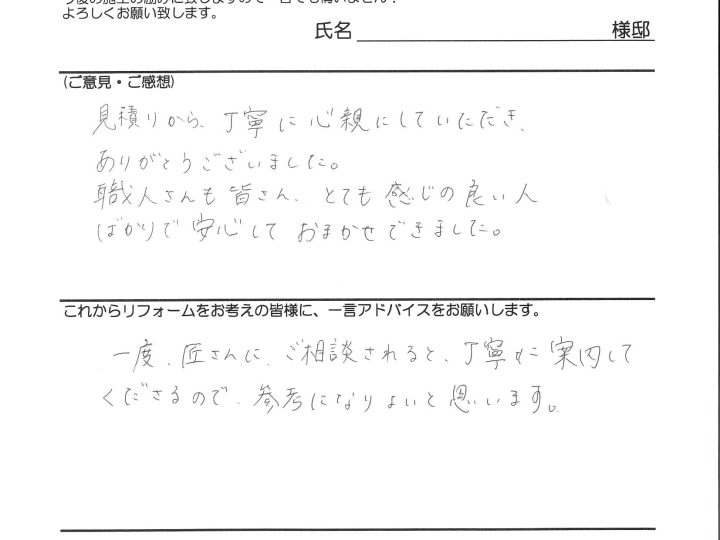 今後の施工の励みに致しますので一言でも構いません！
よろしくお願い致します。
氏名 様邸
(ご意見・ご感想)
見積りから、丁寧に心親にしていただき、
ありがとうございました。
職人さんも皆さん、とても感じの良い人
ばかりで安心しておまかせできました。
これからリフォームをお考えの皆様に、一言アドバイスをお願いします。
一度、匠さんに、ご相談されると、丁寧に案内して
くださるので、参考になりよいと思います。